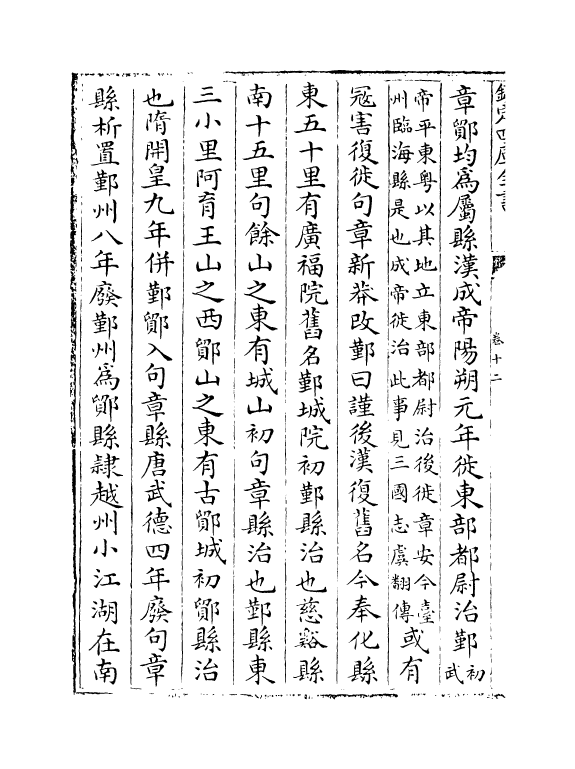 欽定四庫全書
卷十二
章鄮均為屬縣漢成帝陽朔元年徙東部都尉治鄞初武
帝平東粵以其地立東部都尉治後徙章安今臺
州臨海縣是也成帝徙治此事見三國志虞翻傳或有
冦害復徙句章新莽改鄞曰謹後漢復舊名今奉化縣
東五十里有廣福院舊名鄞城院初鄞縣治也慈谿縣
南十五里句餘山之東有城山初句章縣治也鄞縣東
三小里阿育王山之西鄮山之東有古鄮城初鄮縣治
也隋開皇九年併鄞鄮入句章縣唐武德四年廢句章
縣析置鄞州八年廢鄞州為鄮縣隷越州小江湖在南